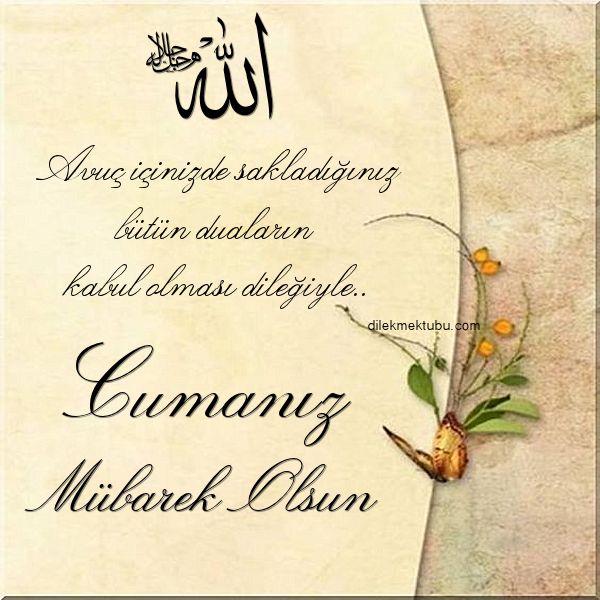 الله جل جلاله
Avuç içinizde sakladığınız
bütün duaların
kabul olması dileğiyle..
dilekmektubu.com
Cumanız
Mübarek Olsun